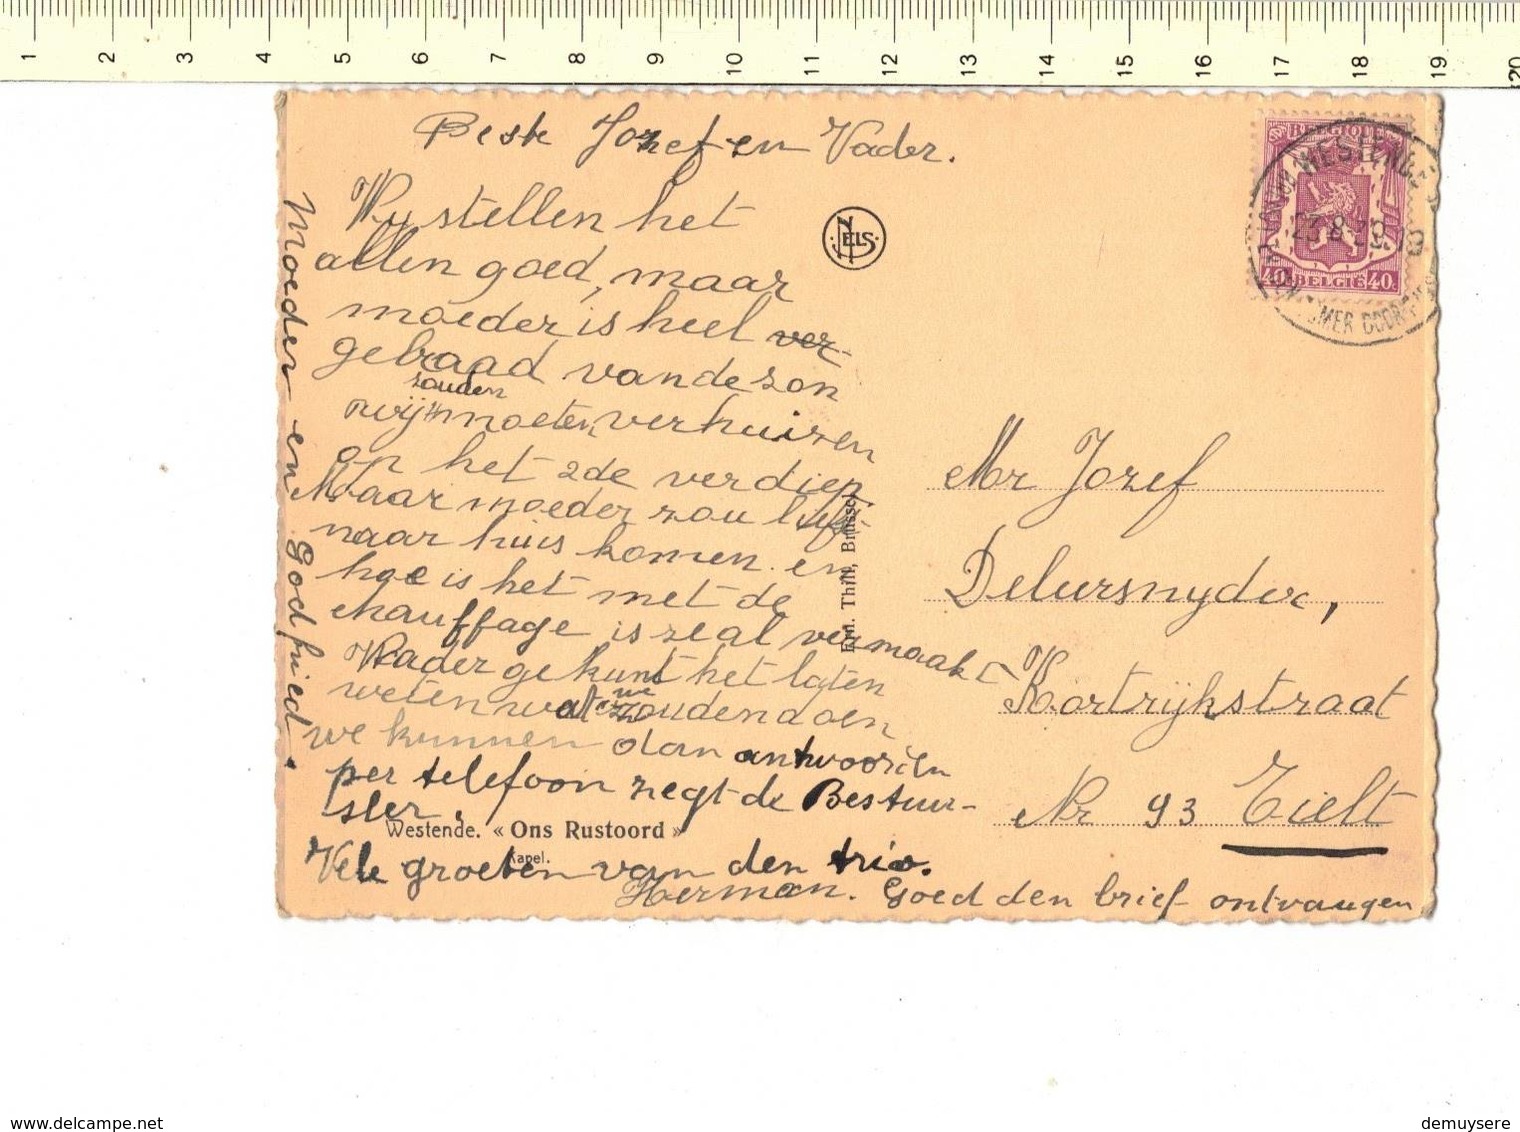 1 2 3 4 5 6 7 8 9 10 11 12 13 14 15 16 17 18 19 20
Beste Jozef en Vader.
Wy stellen het
allen goed, maar
moeder is heel ver-
gebraad van de zon
zouden
wij moeten verhuizen
op het 2de verdiep
Maar moeder zou liefst
naar huis komen. en
hoe is het met de
chauffage is ze al vermaakt
Vader ge kunt het laten
weten wat we zouden doen
we kunnen dan antwoorden
per telefoon zegt de Bestuur-
ster.
Westende. « Ons Rustoord »
Kapel.
Vele groeten van den trio.
Herman. Goed den brief ontvangen
Moeder en Godfried.
NELS
Em. Thill, Brussel
BELGIQUE
40 BELGIË 40
WESTENDE
23-8-39.19
Mr Jozef
Delursnyder,
Kortrijkstraat
Nr 93 Tielt
demuysere